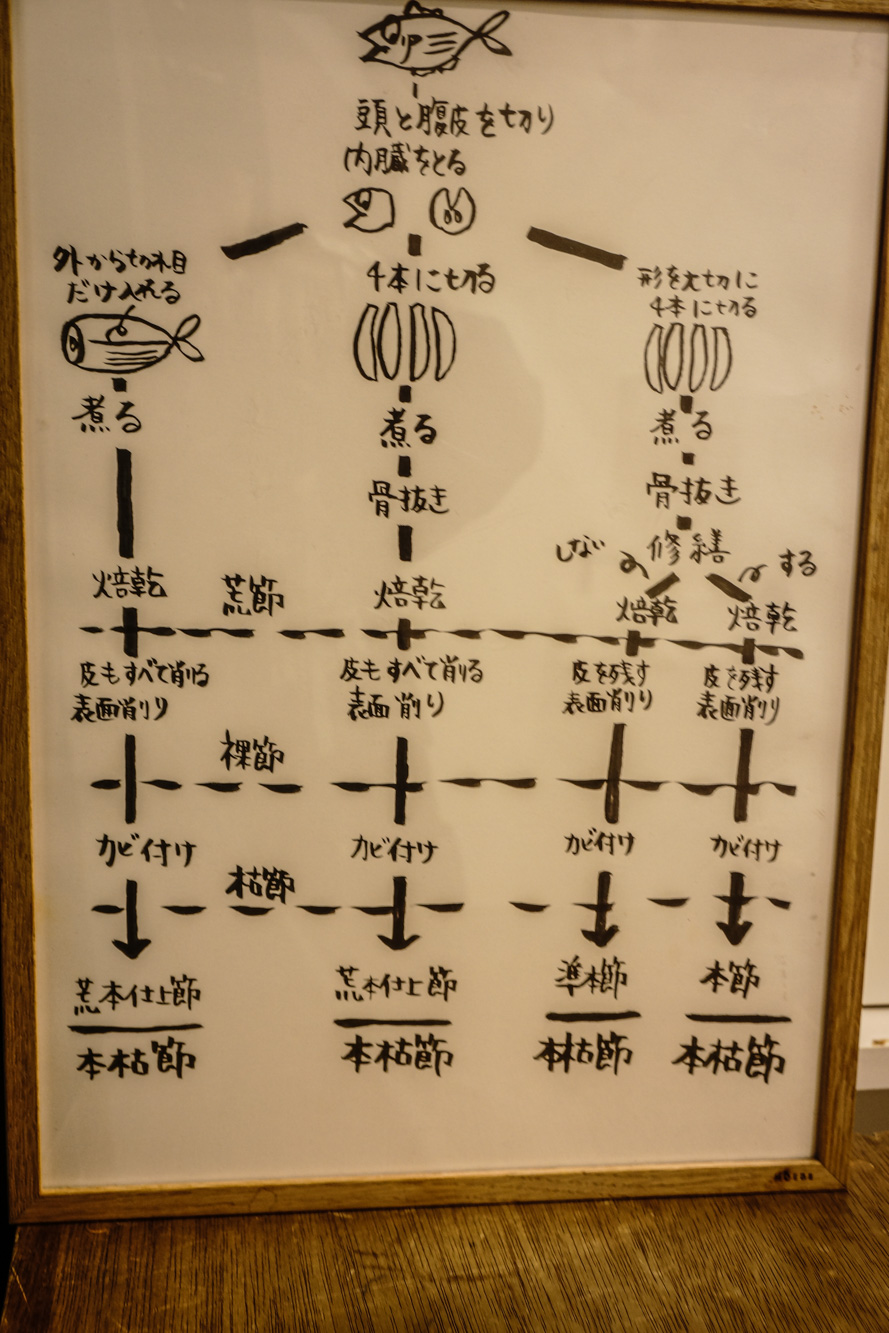 頭と腹皮を切り
内臓をとる
外から切れ目
だけ入れる
4本に切る
形を大切に
4本に切る
煮る
煮る
煮る
骨抜き
骨抜き
修繕
しない
する
焙乾
荒節
焙乾
焙乾
焙乾
皮もすべて削る
表面削り
皮もすべて削る
表面削り
皮を残す
表面削り
皮を残す
表面削り
裸節
カビ付け
カビ付け
カビ付け
カビ付け
枯節
荒本仕上節
荒本仕上節
準本節
本節
本枯節
本枯節
本枯節
本枯節